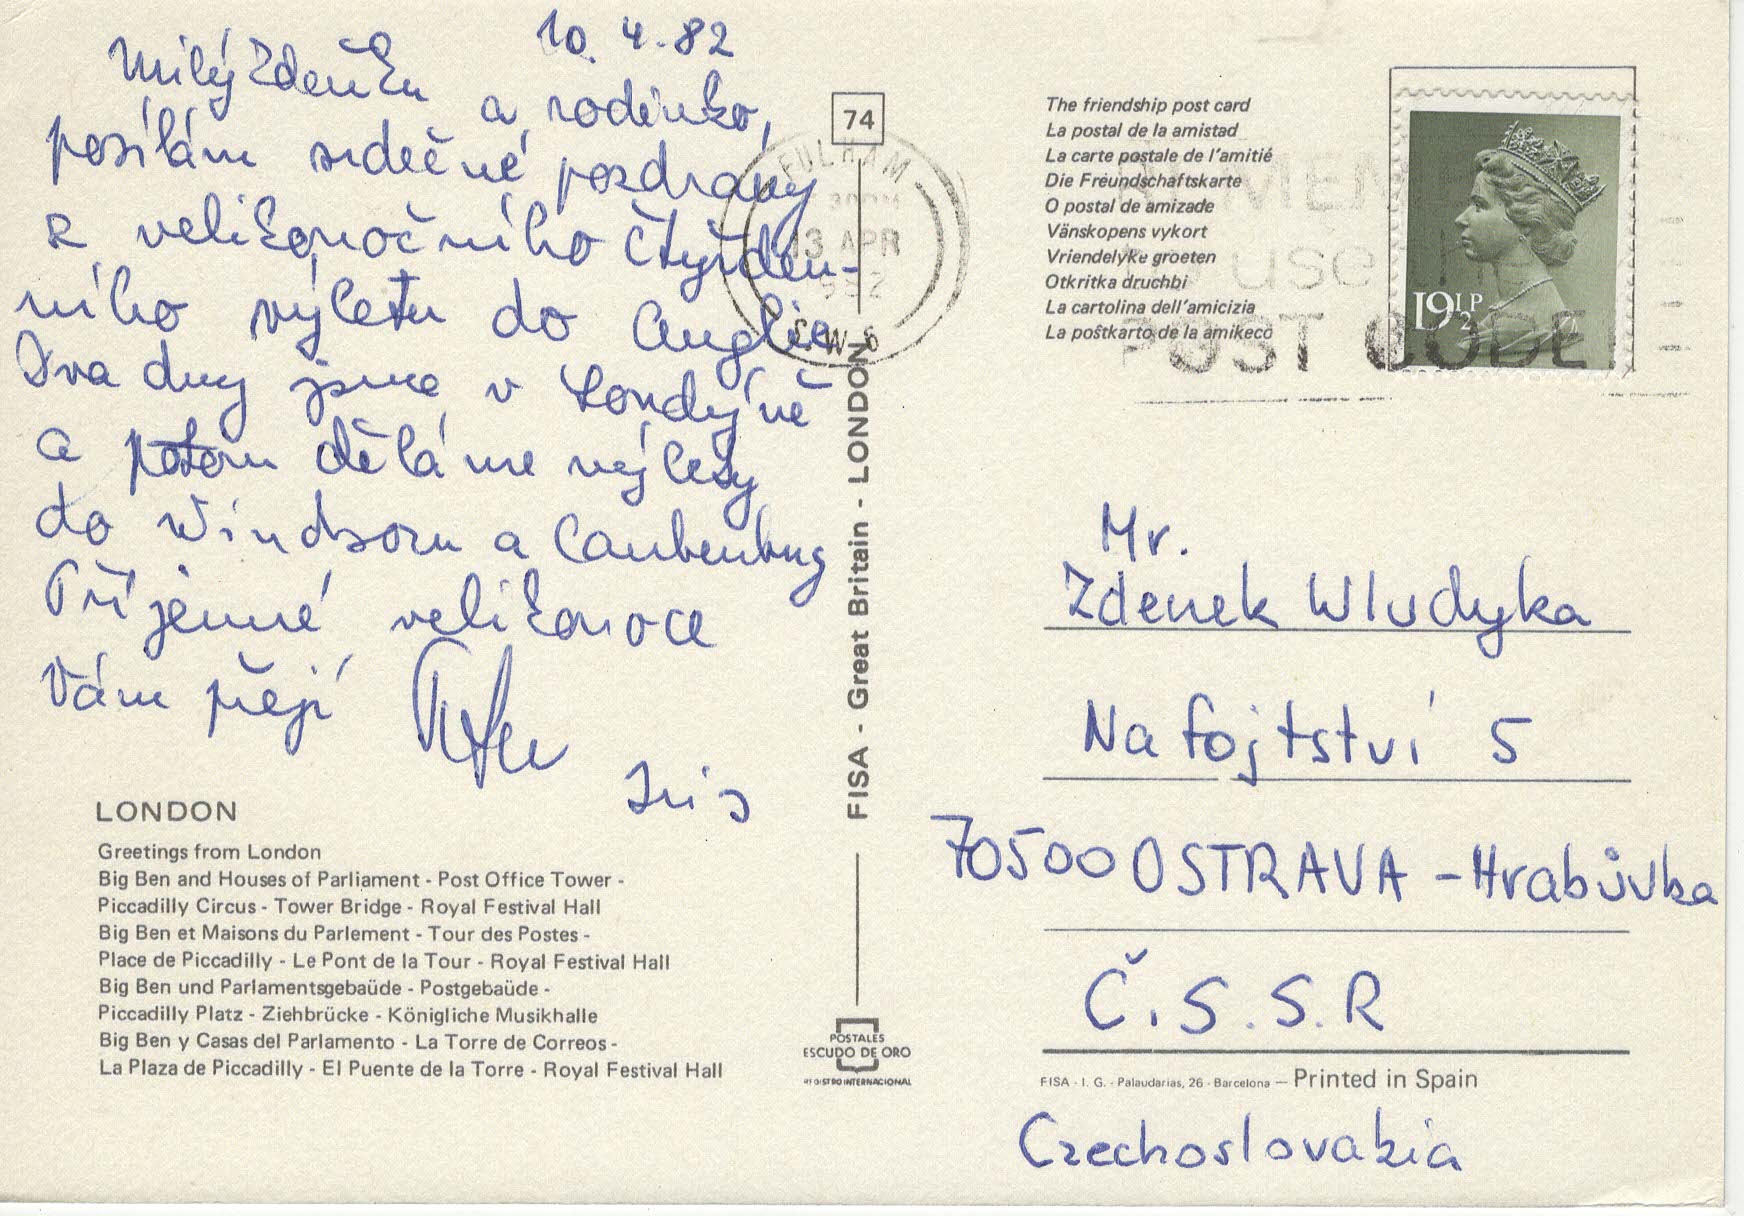 10. 4. 82
Milý Zdeňku
a rodinko,
posílám srdečné pozdravy
z velikonočního čtyřden-
ního výletu do Anglie.
Dva dny jsme v Londýně
a potom děláme výlety
do Windsoru a Canterbury
Příjemné velikonoce
Vám přejí
LONDON
Greetings from London
Big Ben and Houses of Parliament - Post Office Tower -
Piccadilly Circus - Tower Bridge - Royal Festival Hall
Big Ben et Maisons du Parlement - Tour des Postes -
Place de Piccadilly - Le Pont de la Tour - Royal Festival Hall
Big Ben und Parlamentsgebaüde - Postgebaüde -
Piccadilly Platz - Ziehbrücke - Königliche Musikhalle
Big Ben y Casas del Parlamento - La Torre de Correos -
La Plaza de Piccadilly - El Puente de la Torre - Royal Festival Hall
74
FULHAM
13 APR
S.W.6
FISA - Great Britain - LONDON
POSTALES
ESCUDO DE ORO
REGISTRO INTERNACIONAL
The friendship post card
La postal de la amistad
La carte postale de l'amitié
Die Freundschaftskarte
O postal de amizade
Vänskopens vykort
Vriendelyke groeten
Otkritka druchbi
La cartolina dell'amicizia
La poŝtkarto de la amikeco
use
POST CODE
19½P
Mr.
Zdenek Wludyka
Na fojtství 5
70500 OSTRAVA - Hrabůvka
Č.S.S.R
FISA - I. G. - Palaudarias, 26 - Barcelona — Printed in Spain
Czechoslovakia